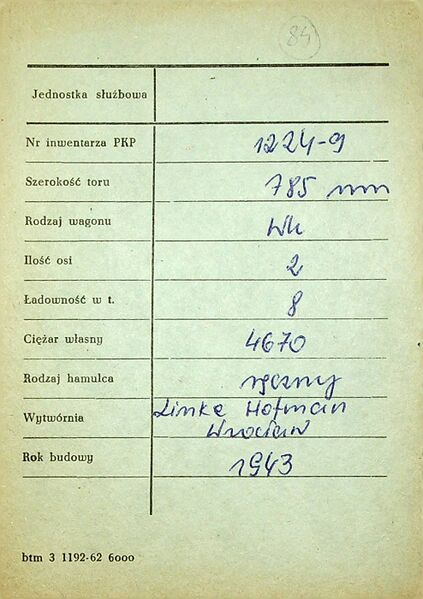 84
Jednostka służbowa
Nr inwentarza PKP 1224-9
Szerokość toru 785 mm
Rodzaj wagonu Wk
Ilość osi 2
Ładowność w t. 8
Ciężar własny 4670
Rodzaj hamulca ręczny
Wytwórnia Linke Hofman
Wrocław
Rok budowy 1943
btm 3 1192-62 6000